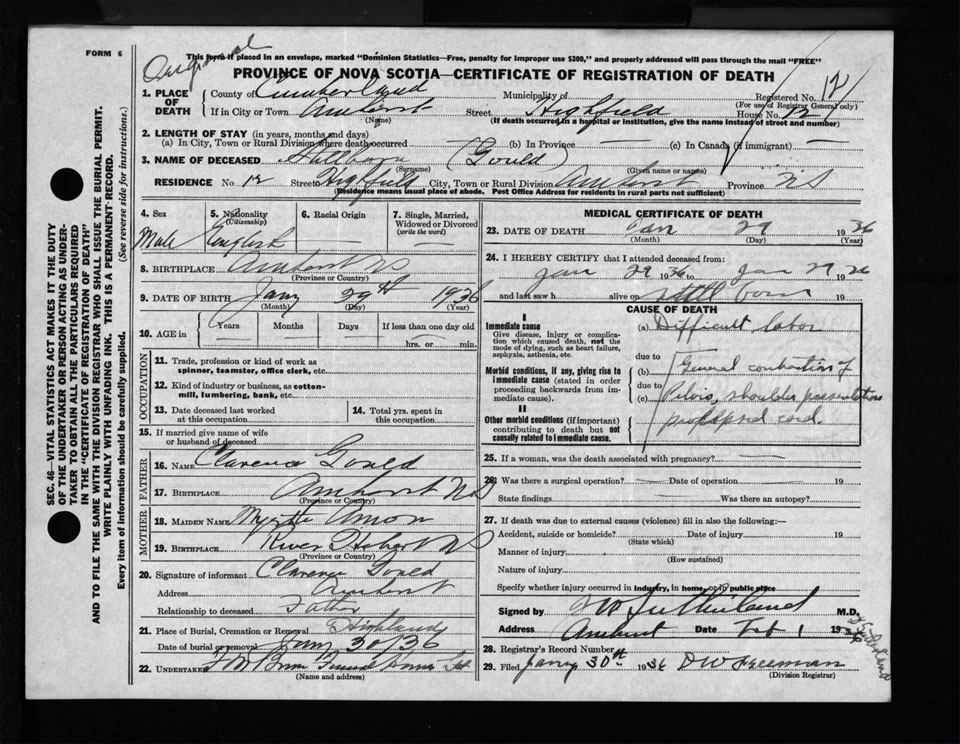 FORM 6
Original
This form if placed in an envelope, marked "Dominion Statistics—Free, penalty for improper use $300," and properly addressed will pass through the mail "FREE"
PROVINCE OF NOVA SCOTIA—CERTIFICATE OF REGISTRATION OF DEATH
1. PLACE OF DEATH
County of Cumberland Municipality of Registered No. 121
(For use of Registrar General only)
If in City or Town Amherst Street Highfield House No. 12
(Name) (If death occurred in a hospital or institution, give the name instead of street and number)
2. LENGTH OF STAY (in years, months and days)
(a) In City, Town or Rural Division where death occurred — (b) In Province — (c) In Canada (if immigrant) —
3. NAME OF DECEASED Stillborn (Gould)
(Surname) (Given name or names)
RESIDENCE No. 12 Street Highfield City, Town or Rural Division Amherst Province NS
(Residence means usual place of abode. Post Office Address for residents in rural parts not sufficient)
4. Sex 5. Nationality (Citizenship) 6. Racial Origin 7. Single, Married, Widowed or Divorced (write the word)
Male English — —
8. BIRTHPLACE Amherst NS
(Province or Country)
9. DATE OF BIRTH Jany 29th 1936
(Month) (Day) (Year)
10. AGE in Years Months Days If less than one day old
hrs. or min.
OCCUPATION
11. Trade, profession or kind of work as spinner, teamster, office clerk, etc.
12. Kind of industry or business, as cotton-mill, lumbering, bank, etc.
13. Date deceased last worked at this occupation
14. Total yrs. spent in this occupation
15. If married give name of wife or husband of deceased
FATHER
16. Name Clarence Gould
17. Birthplace Amherst NS
(Province or Country)
MOTHER
18. Maiden Name Myrtle Amon
19. Birthplace River Hebert NS
(Province or Country)
20. Signature of informant Clarence Gould
Address Amherst
Relationship to deceased Father
21. Place of Burial, Cremation or Removal Highland
Date of burial or removal Jany 30/36
22. Undertaker
(Name and address)
MEDICAL CERTIFICATE OF DEATH
23. DATE OF DEATH Jan 29 1936
(Month) (Day) (Year)
24. I HEREBY CERTIFY that I attended deceased from:
Jan 29 1936 to Jan 29 1936
and last saw h alive on still born 19
CAUSE OF DEATH
I
Immediate cause
Give disease, injury or complication which caused death, not the mode of dying, such as heart failure, asphyxia, asthenia, etc.
(a) Difficult labor
due to
Morbid conditions, if any, giving rise to immediate cause (stated in order proceeding backwards from immediate cause).
(b) General contraction of
due to
(c) Pelvis, shoulder presentation
prolapsed cord.
II
Other morbid conditions (if important) contributing to death but not causally related to immediate cause.
25. If a woman, was the death associated with pregnancy? —
26. Was there a surgical operation? — Date of operation — 19
State findings — Was there an autopsy?
27. If death was due to external causes (violence) fill in also the following:—
Accident, suicide or homicide? Date of injury 19
(State which)
Manner of injury
(How sustained)
Nature of injury
Specify whether injury occurred in industry, in home, or in public place
Signed by J W Sutherland M.D.
Address Amherst Date Feb 1 1936
28. Registrar's Record Number
29. Filed Jany 30th 1936 D W Freeman
(Division Registrar)
SEC. 46—VITAL STATISTICS ACT MAKES IT THE DUTY
OF THE UNDERTAKER OR PERSON ACTING AS UNDER-
TAKER TO OBTAIN ALL THE PARTICULARS REQUIRED
IN THE "CERTIFICATE OF REGISTRATION OF DEATH"
AND TO FILE THE SAME WITH THE DIVISION REGISTRAR WHO SHALL ISSUE THE BURIAL PERMIT.
WRITE PLAINLY WITH UNFADING INK. THIS IS A PERMANENT RECORD.
Every item of information should be carefully supplied. (See reverse side for instructions.)